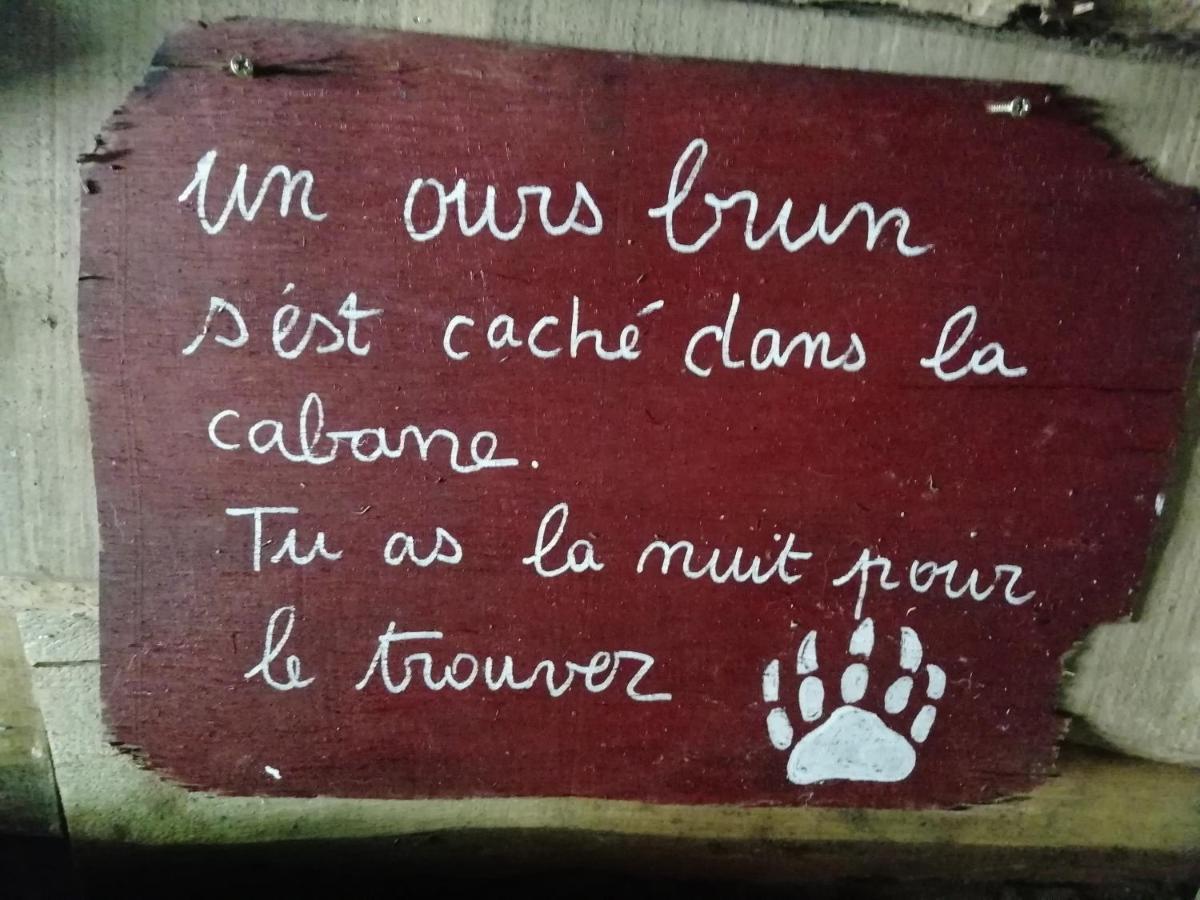 Un ours brun
s'est caché dans la
cabane.
Tu as la nuit pour
le trouver